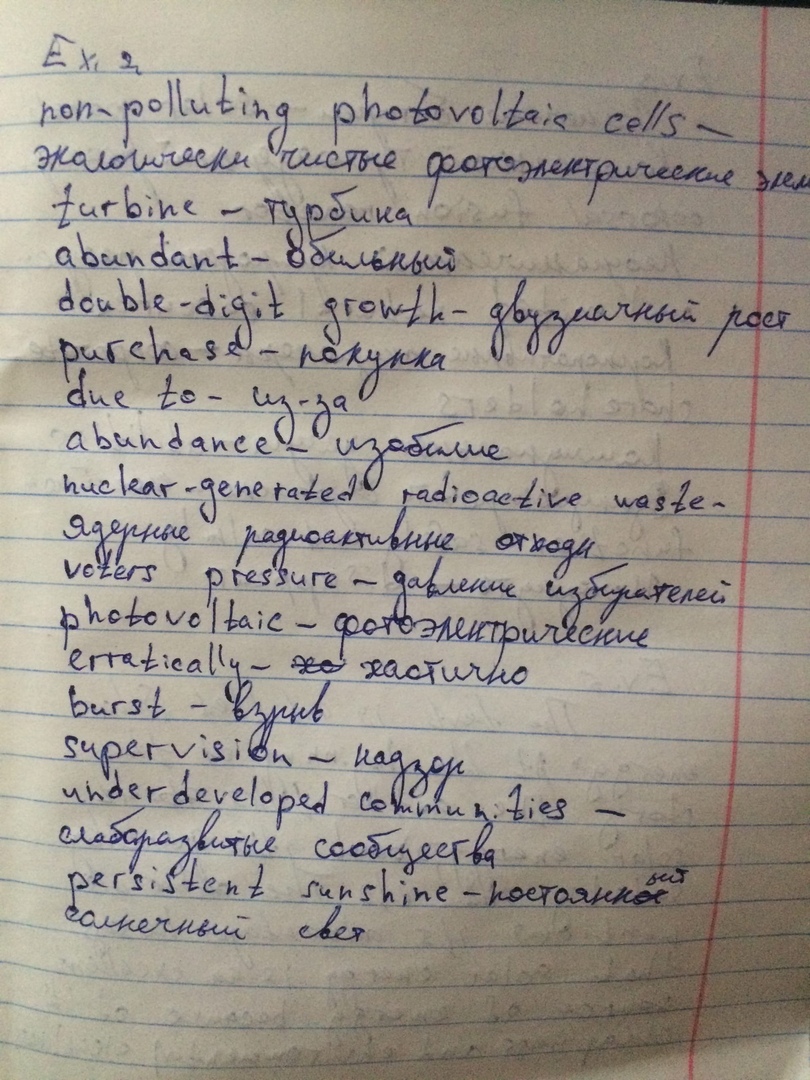 Ex. 2
non-polluting photovoltaic cells –
экалоически чистые фотоэлектрические элем
turbine – турбина
abundant – обильный
double-digit growth – двузначный рост
purchase – покупка
due to – из-за
abundance – изобилие
nuclear-generated radioactive waste –
ядерные радиоактивные отходы
voters pressure – давление избирателей
photovoltaic – фотоэлектрические
erratically – хастично
burst – взрыв
supervision – надзор
underdeveloped communities –
слаборазвитые сообщества
persistent sunshine – постоянный
солнечный свет